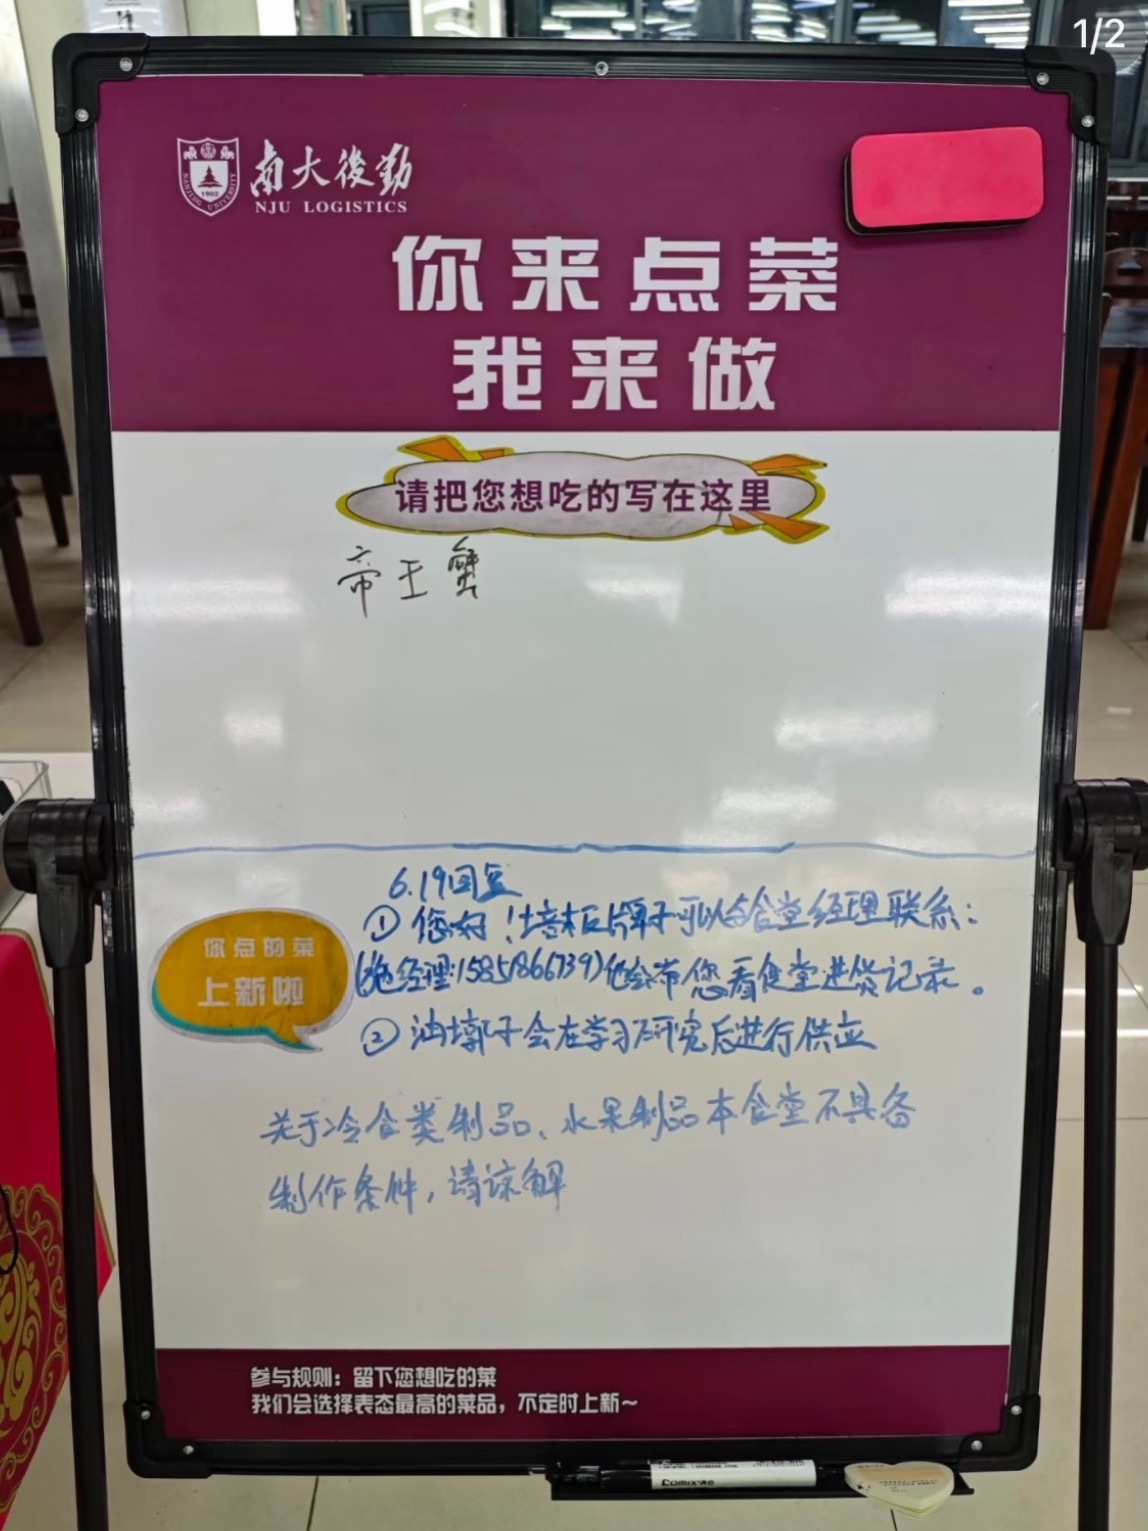 1/2
南大後勤
NJU LOGISTICS
NANJING UNIVERSITY
1902
你来点菜
我来做
请把您想吃的写在这里
帝王蟹
6.19回复
①您好！培根牌子可以与食堂经理联系：
经理:15851866739)他会带您看食堂进货记录。
②油墩子会在学习研究后进行供应
你点的菜
上新啦
关于冷食类制品、水果制品本食堂不具备
制作条件，请谅解
参与规则：留下您想吃的菜
我们会选择表态最高的菜品，不定时上新~
Comix